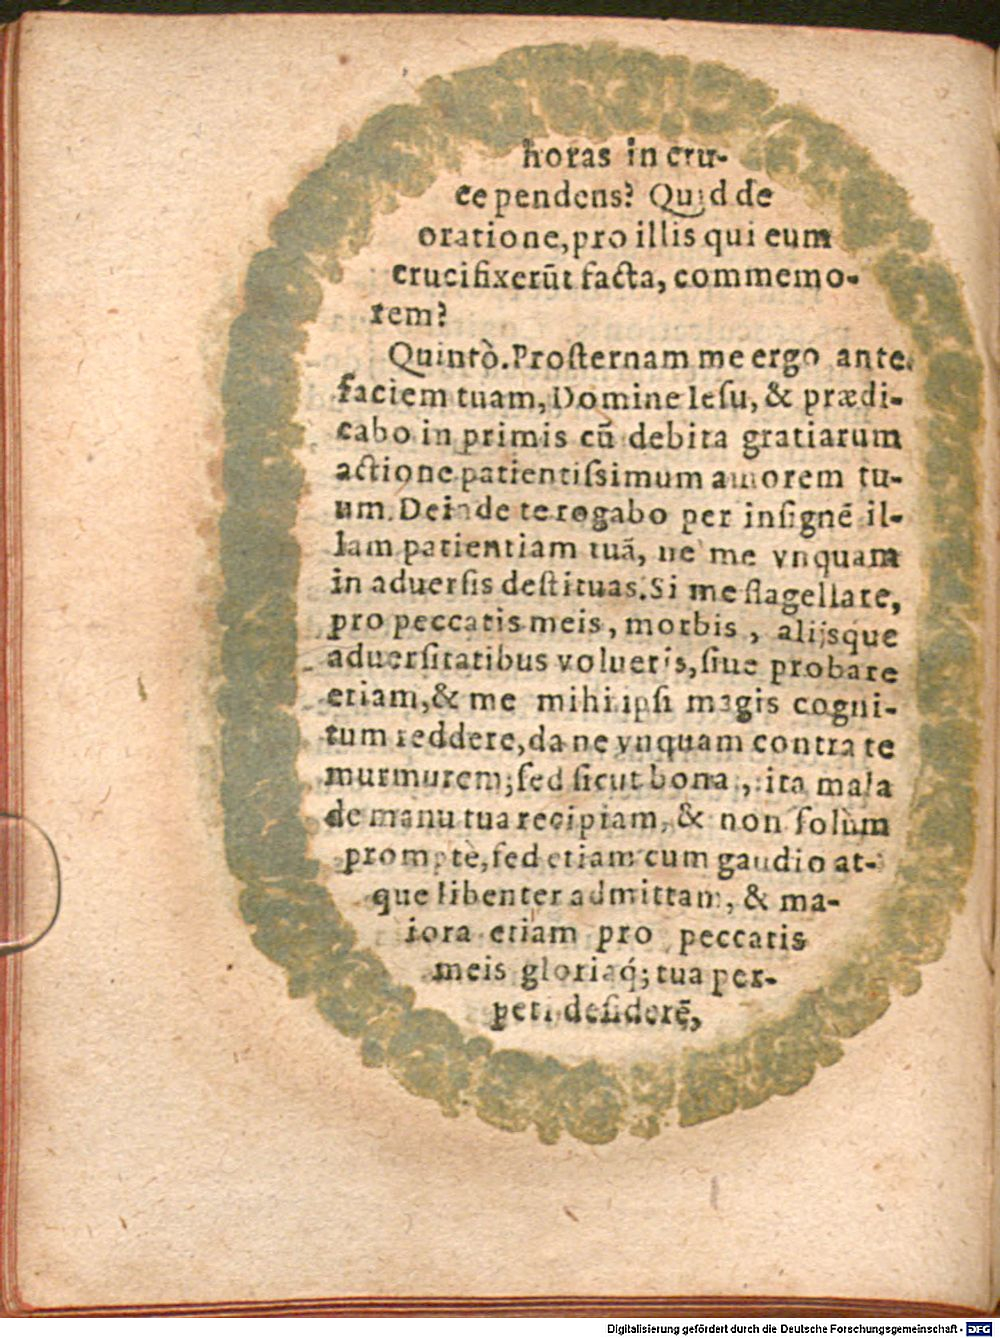 horas in cru-
ce pendens? Quid de
oratione, pro illis qui eum
crucifixerũt facta, commemo-
rem?
Quintò. Prosternam me ergo ante
faciem tuam, Domine Iesu, & prædi-
cabo in primis cũ debita gratiarum
actione patientissimum amorem tu-
um. Deinde te rogabo per insignẽ il-
lam patientiam tuã, ne me vnquam
in aduersis destituas. Si me flagellare,
pro peccatis meis, morbis, alijsque
aduersitatibus volueris, siue probare
etiam, & me mihi ipsi magis cogni-
tum reddere, da ne vnquam contra te
murmurem; sed sicut bona, ita mala
de manu tua recipiam, & non solùm
promptè, sed etiam cum gaudio at-
que libenter admittam, & ma-
iora etiam pro peccatis
meis gloriaq́; tua per-
peti desiderẽ,
Digitalisierung gefördert durch die Deutsche Forschungsgemeinschaft - DFG